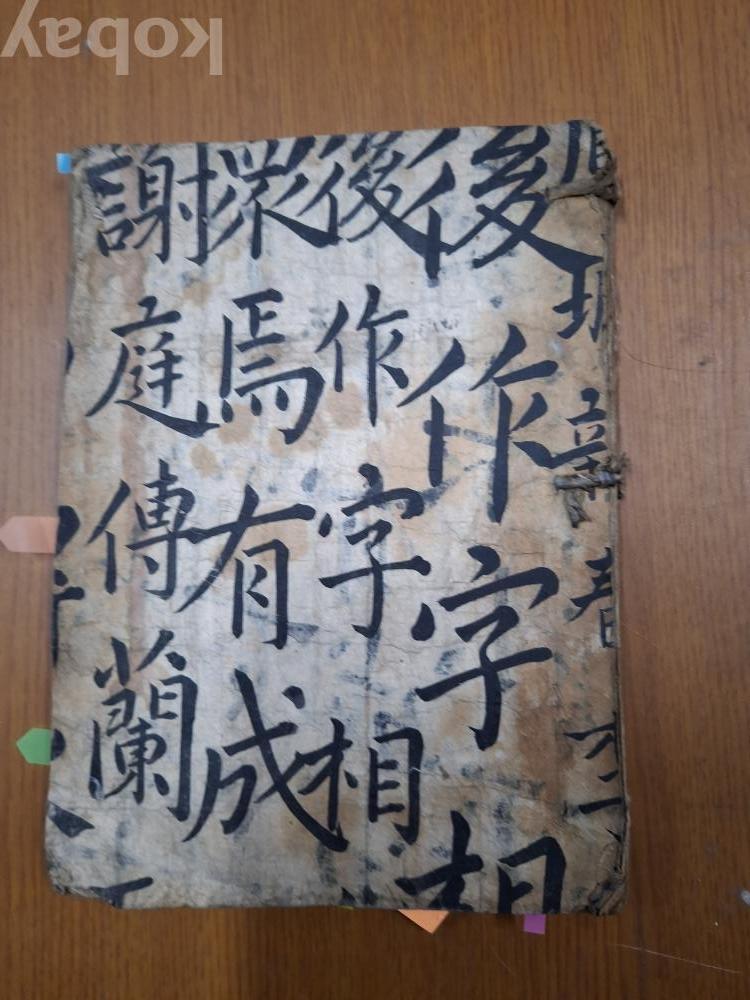 後作字相
後作字相
焉有成
謝庭傳蘭
春
kobay